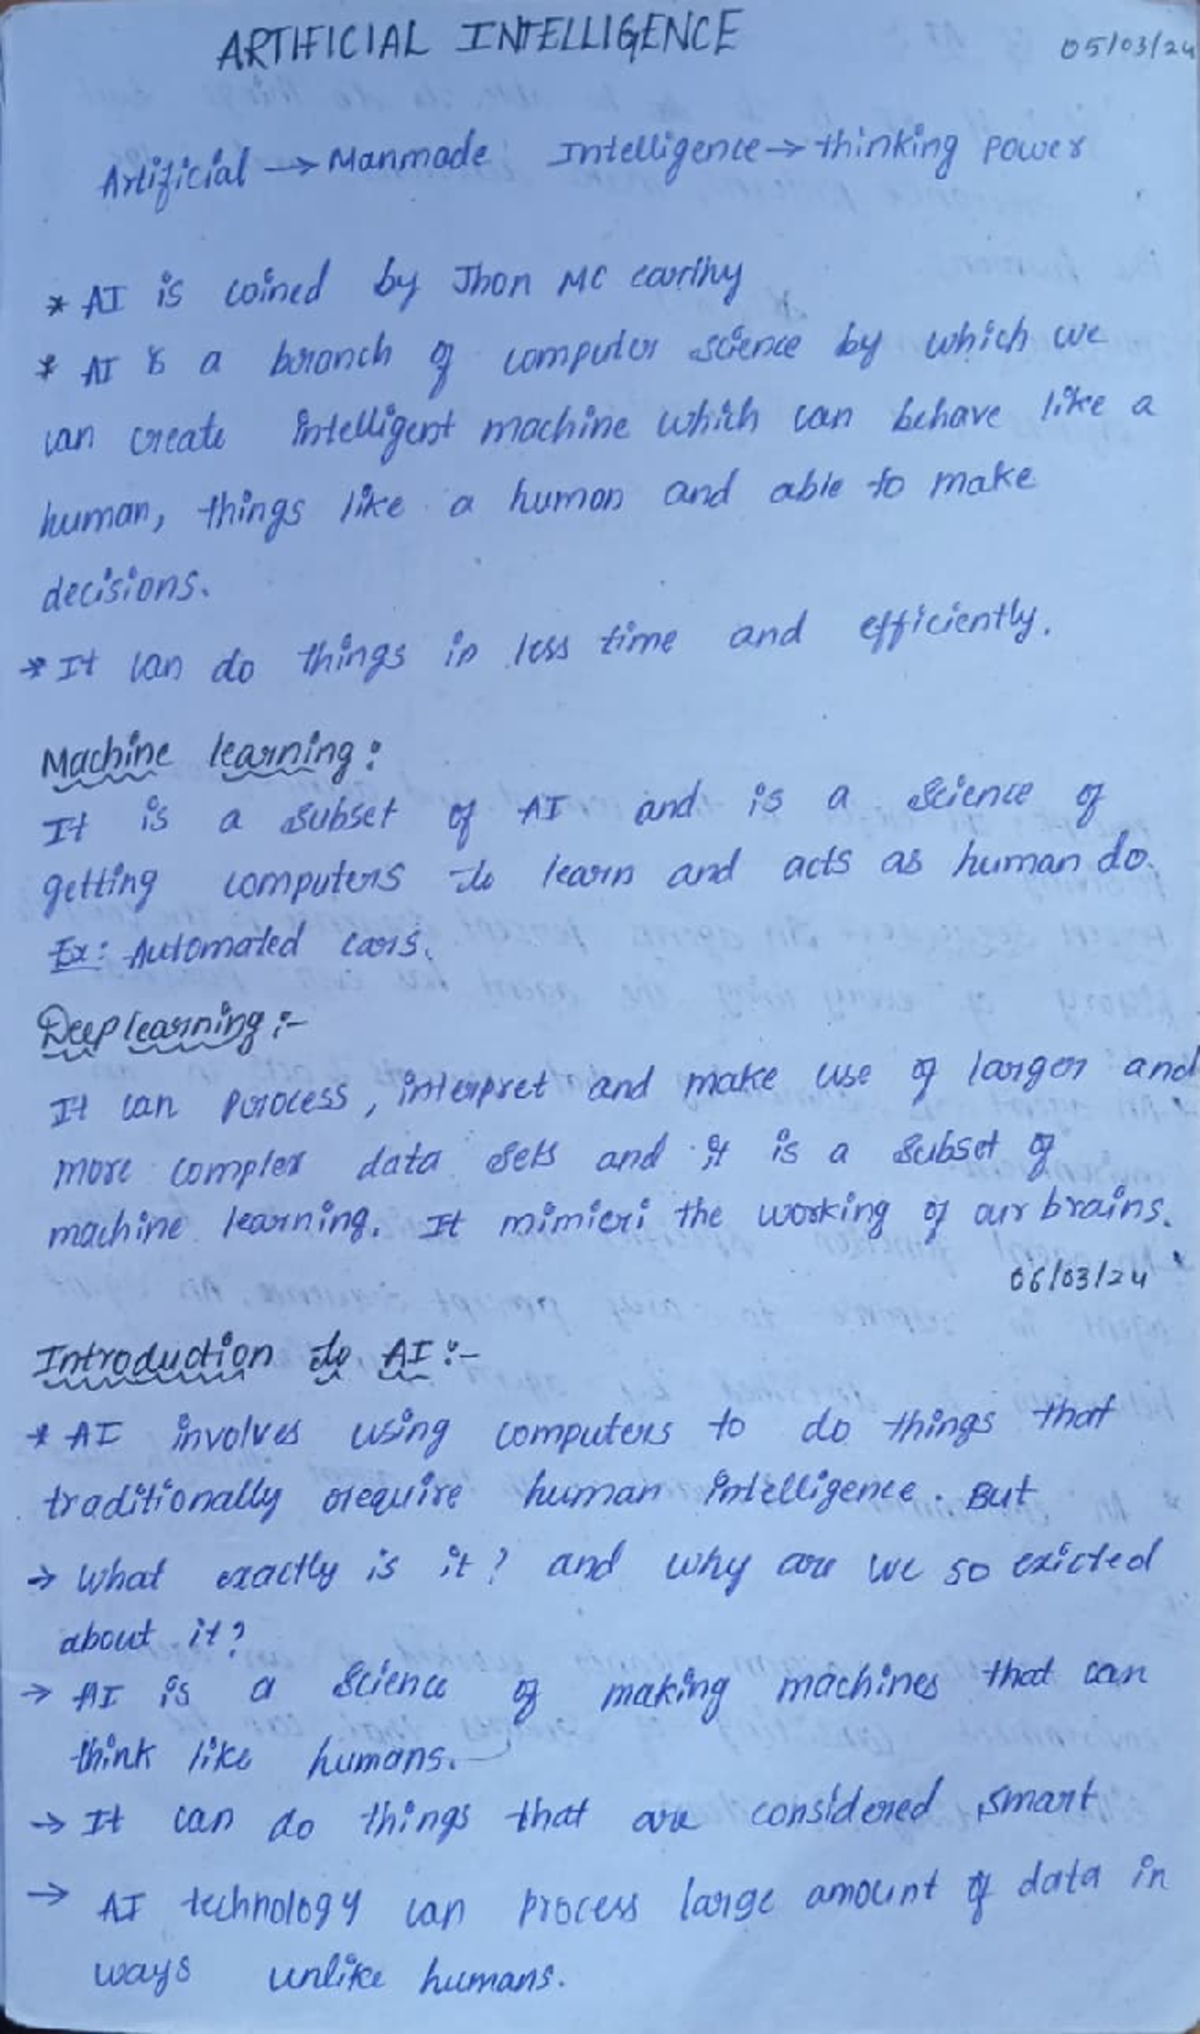 ARTIFICIAL INTELLIGENCE 05/03/24
Artificial → Manmade Intelligence → thinking power
* AI is coined by Jhon MC carthy
* AI is a branch of computer science by which we
can create intelligent machine which can behave like a
human, things like a human and able to make
decisions.
* It can do things in less time and efficiently.
Machine learning:
It is a subset of AI and is a science of
getting computers to learn and acts as human do.
Ex: Automated cars.
Deep learning:-
It can process, interpret and make use of larger and
more complex data sets and it is a subset of
machine learning. It mimicri the working of our brains.
06/03/24
Introduction to AI:-
* AI involves using computers to do things that
traditionally require human intelligence. But
→ What exactly is it? and why are we so exicted
about it?
→ AI is a science of making machines that can
think like humans.
→ It can do things that are considered smart
→ AI technology can process large amount of data in
ways unlike humans.